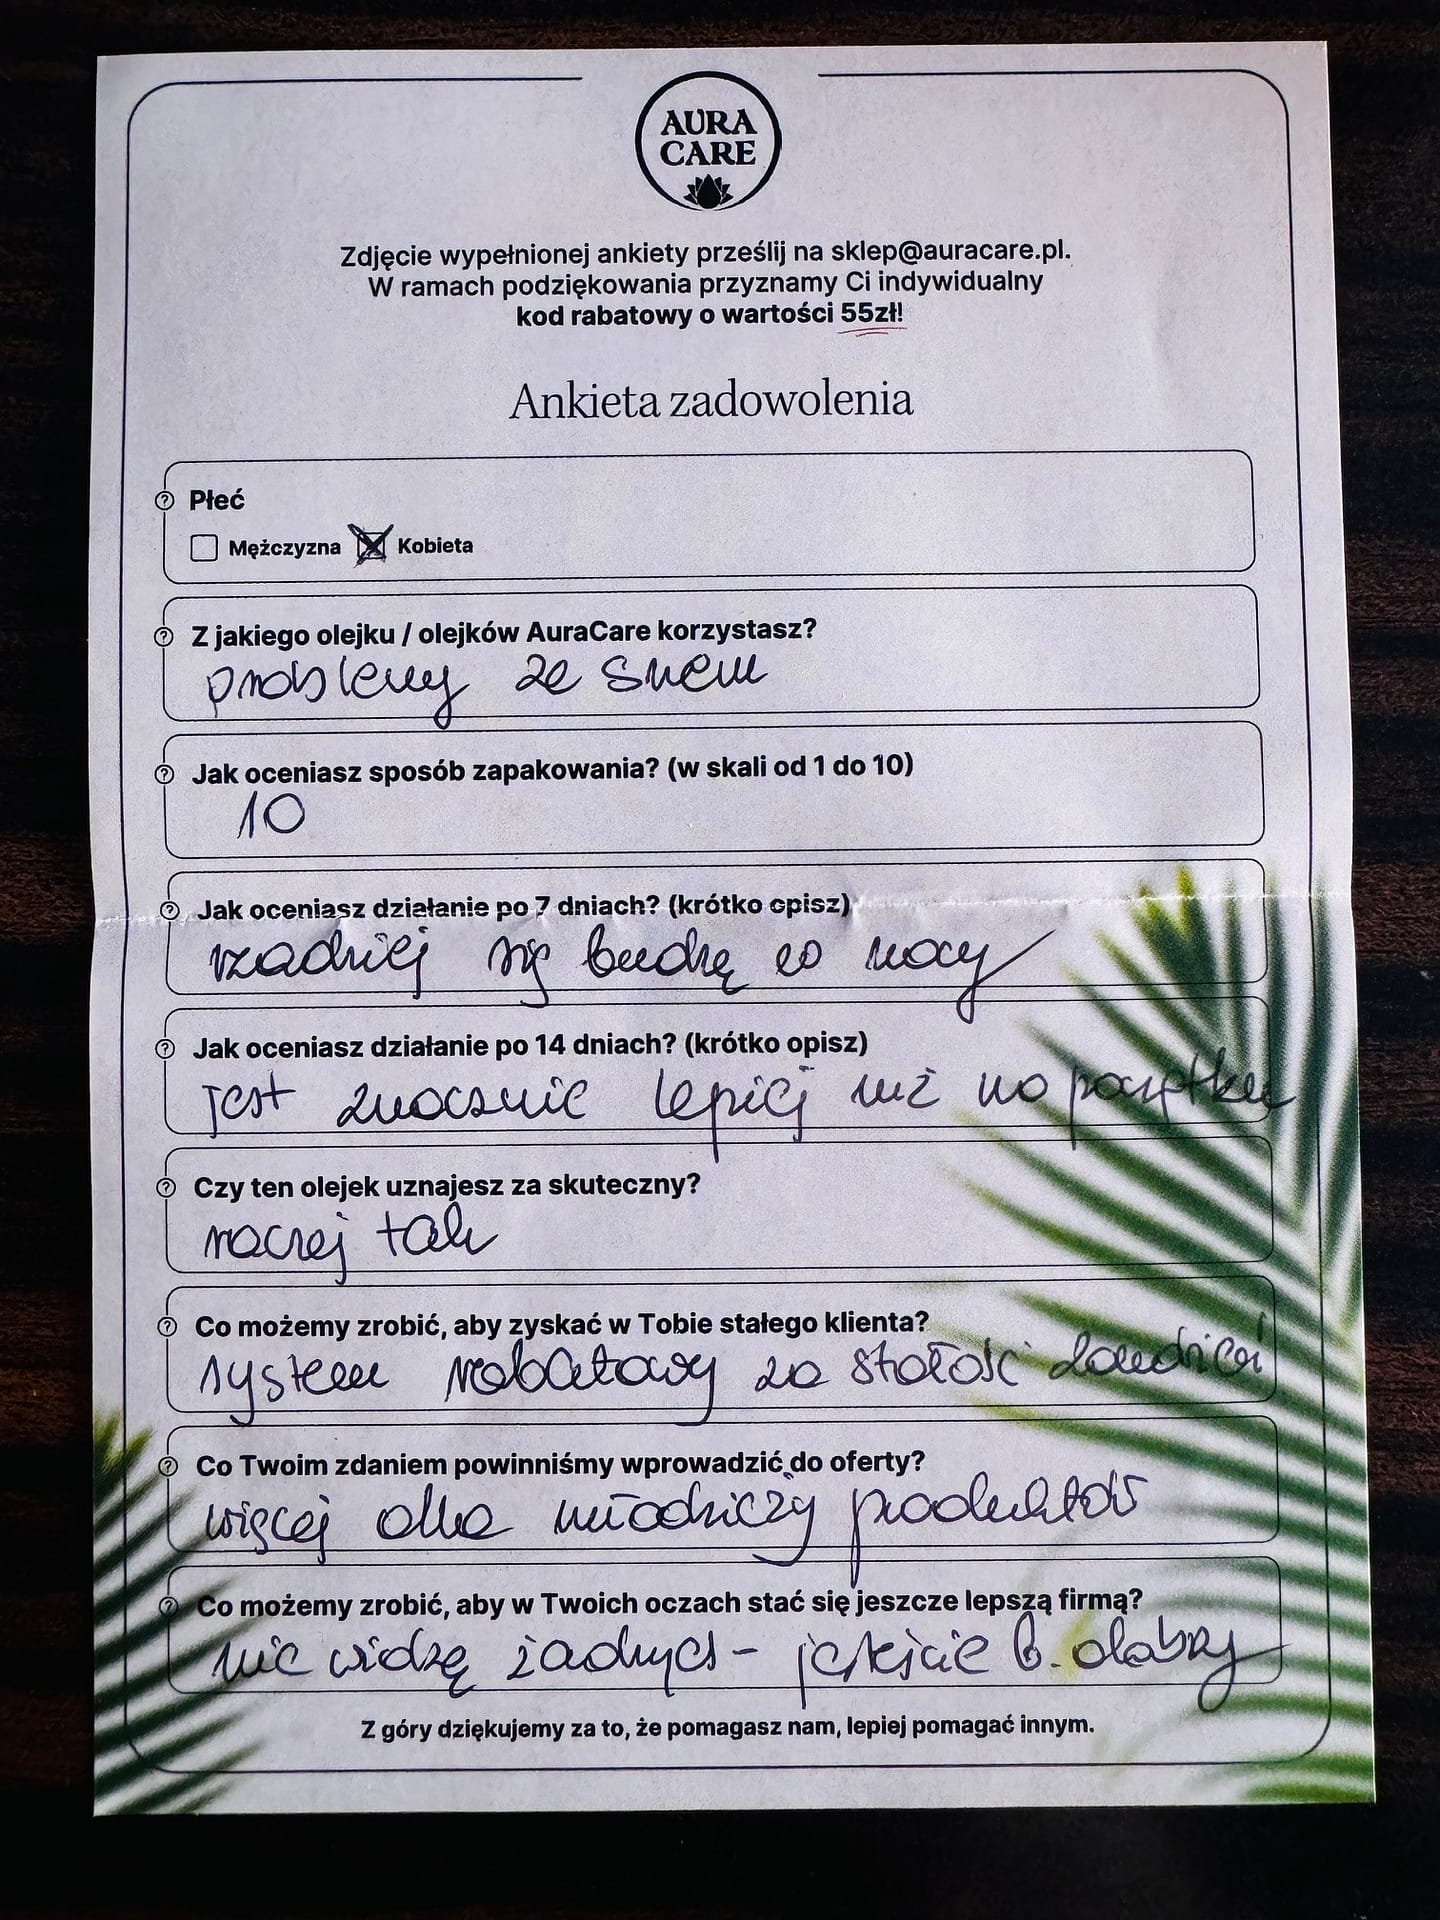 AURA
CARE
Zdjęcie wypełnionej ankiety prześlij na sklep@auracare.pl.
W ramach podziękowania przyznamy Ci indywidualny
kod rabatowy o wartości 55zł!
Ankieta zadowolenia
Płeć
Mężczyzna Kobieta
Z jakiego olejku / olejków AuraCare korzystasz?
problemy ze snem
Jak oceniasz sposób zapakowania? (w skali od 1 do 10)
10
Jak oceniasz działanie po 7 dniach? (krótko opisz)
rzadziej się budzę co nocy
Jak oceniasz działanie po 14 dniach? (krótko opisz)
jest znacznie lepiej niż na początku
Czy ten olejek uznajesz za skuteczny?
raczej tak
Co możemy zrobić, aby zyskać w Tobie stałego klienta?
system rabatowy za stałość
Co Twoim zdaniem powinniśmy wprowadzić do oferty?
więcej dla młodzieży produktów
Co możemy zrobić, aby w Twoich oczach stać się jeszcze lepszą firmą?
nie widzę żadnych - jesteście b. dobrzy
Z góry dziękujemy za to, że pomagasz nam, lepiej pomagać innym.